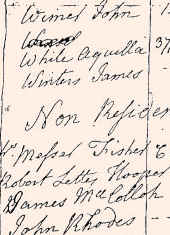 Wimer John
White Aquella 37
Winters James
Non Residen
Messes Fisher 6
Robert Lettes Hooper
James McColloh
John Rhodes